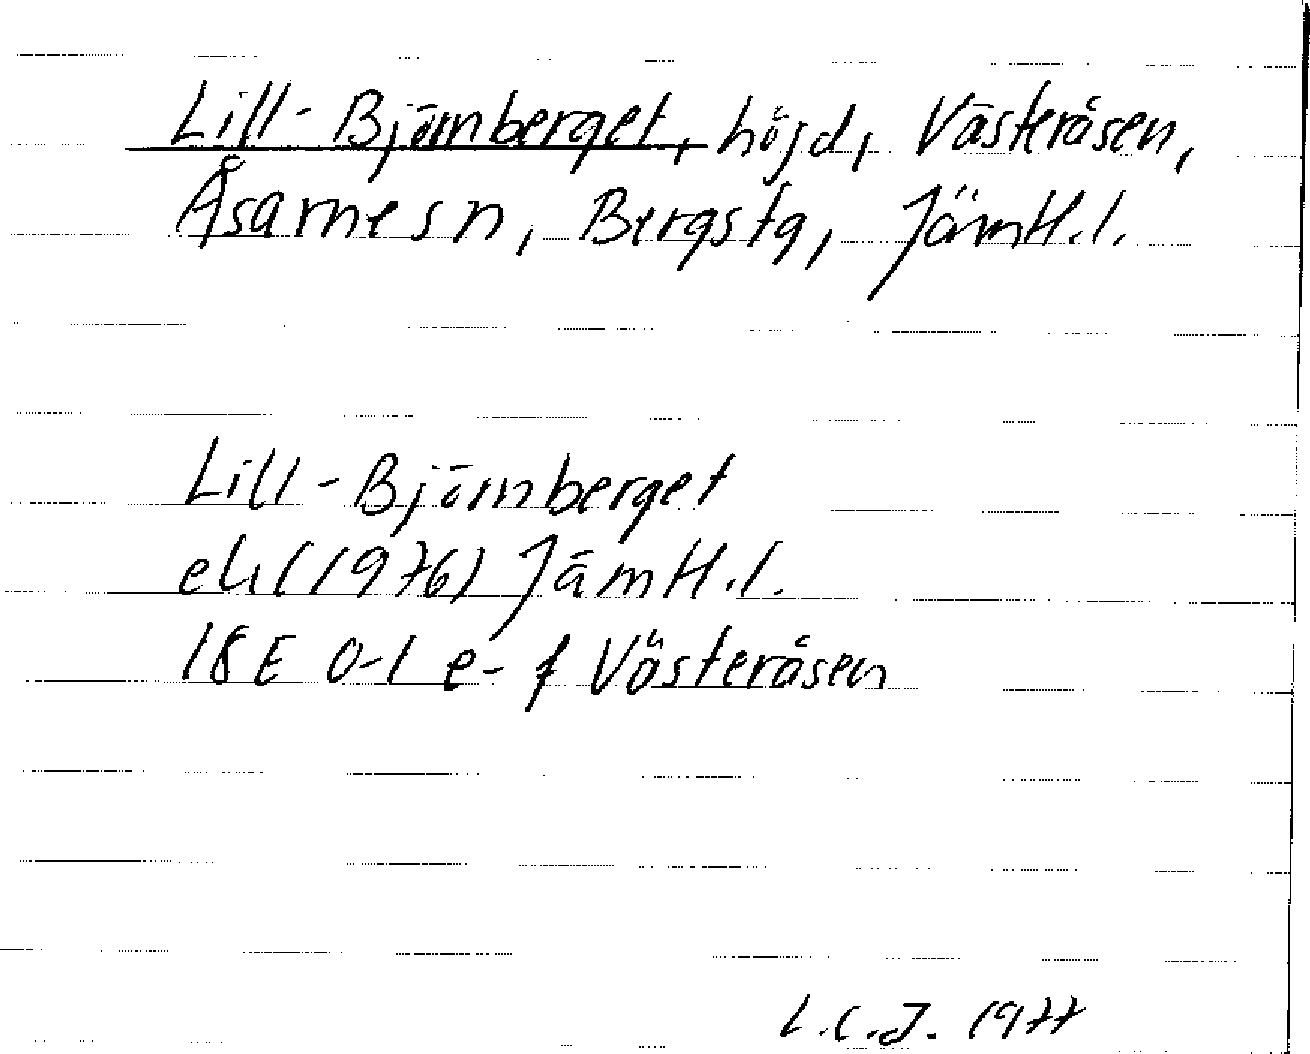 Lill-Björnberget, höjd, Västeråsen,
Åsarnesn, Bergstg, Jämtl.l.
Lill-Björnberget
ek (1976) Jämtl.l.
18E 0-1 e-f Västeråsen
L.C.J. 1977